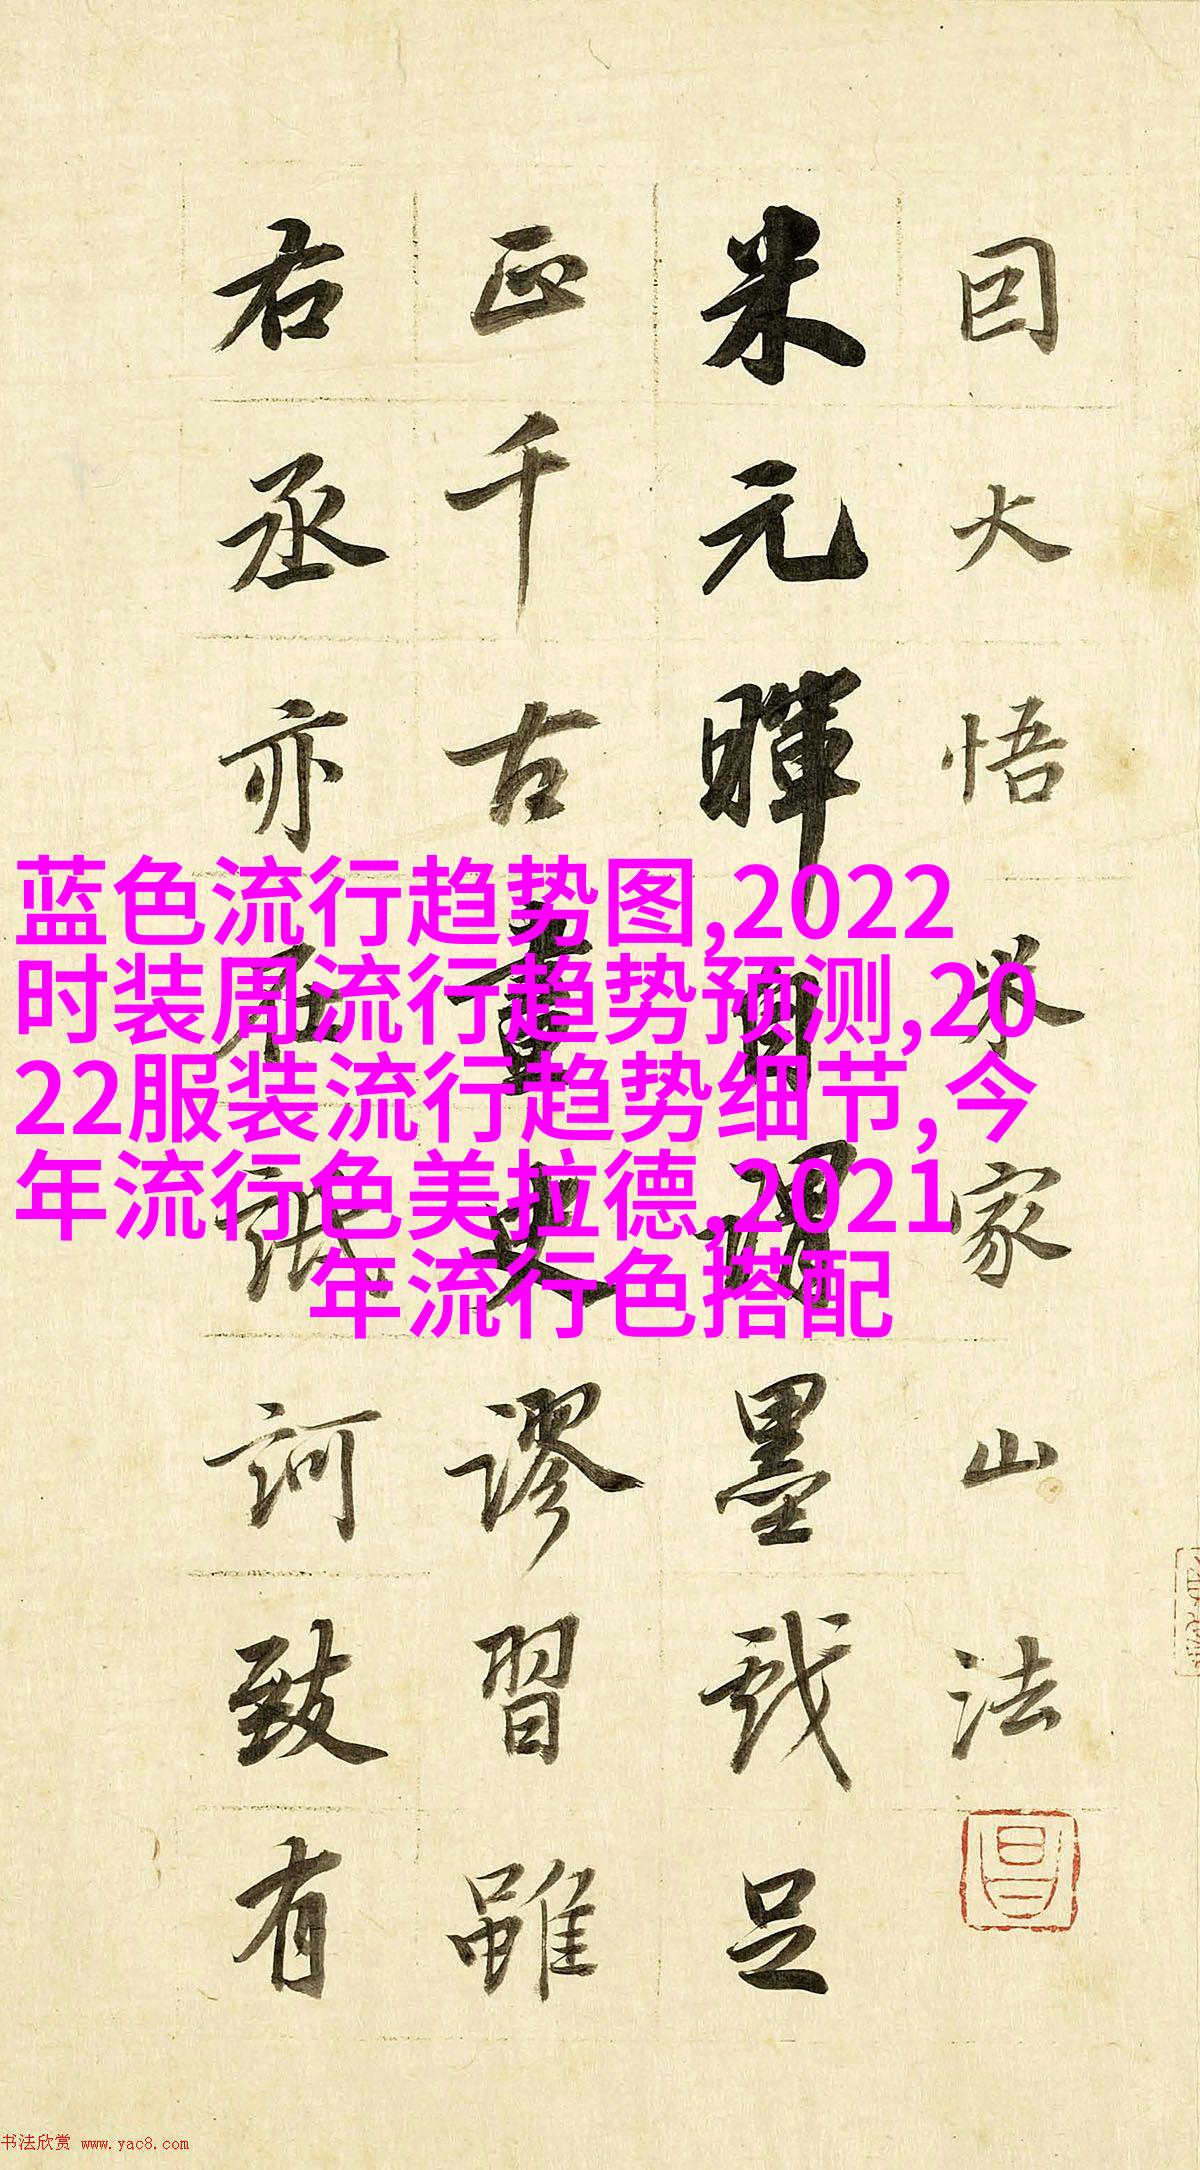 囙大悟米家山法
米元暉自謂墨戲足
正千古畫史謬習雖
右丞亦在詆訶致有
蓝色流行趋势图,2022
时装周流行趋势预测,20
22服装流行趋势细节,今
年流行色美拉德,2021
年流行色搭配
书法欣赏 www.yac8.com